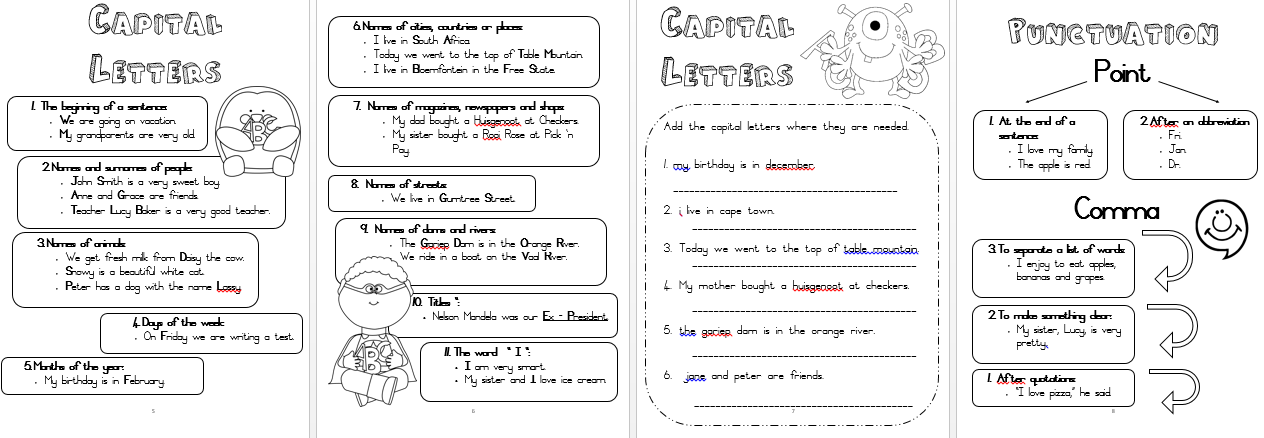 CAPITAL
LETTERS
1. The beginning of a sentence:
We are going on vacation.
My grandparents are very old.
2. Names and surnames of people:
John Smith is a very sweet boy.
Anne and Grace are friends.
Teacher Lucy Baker is a very good teacher.
3. Names of animals:
We get fresh milk from Daisy the cow.
Snowy is a beautiful white cat.
Peter has a dog with the name Lassy.
4. Days of the week:
On Friday we are writing a test.
5. Months of the year:
My birthday is in February.
5
6. Names of cities, countries or places:
I live in South Africa.
Today we went to the top of Table Mountain.
I live in Bloemfontein in the Free State.
7. Names of magazines, newspapers and shops:
My dad bought a Huisgenoot at Checkers.
My sister bought a Rooi Rose at Pick 'n
Pay.
8. Names of streets:
We live in Gumtree Street.
9. Names of dams and rivers:
The Gariep Dam is in the Orange River.
We ride in a boat on the Vaal River.
10. Titles ":
Nelson Mandela was our Ex - President.
11. The word " I ":
I am very smart.
My sister and I love ice cream.
6
CAPITAL
LETTERS
Add the capital letters where they are needed.
1. my, birthday is in december.
2. i, live in cape town.
3. Today we went to the top of table mountain.
4. My mother bought a huisgenoot at checkers.
5. the gariep dam is in the orange river.
6. jane and peter are friends.
7
PUNCTUATION
Point
1. At the end of a
sentence:
I love my family.
The apple is red.
2. After an abbreviation
Fri.
Jan.
Dr.
Comma
3. To separate a list of words:
I enjoy to eat apples,
bananas and grapes.
2. To make something clear:
My sister, Lucy, is very
pretty.
1. After quotations:
"I love pizza," he said.
8